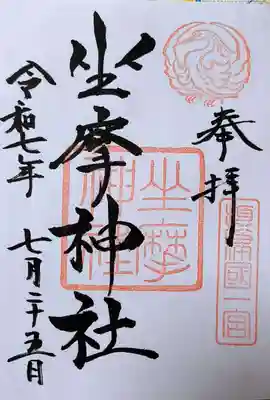 奉拝
摂津國一宮
坐摩神社
坐摩神社
令和七年 七月二十五日